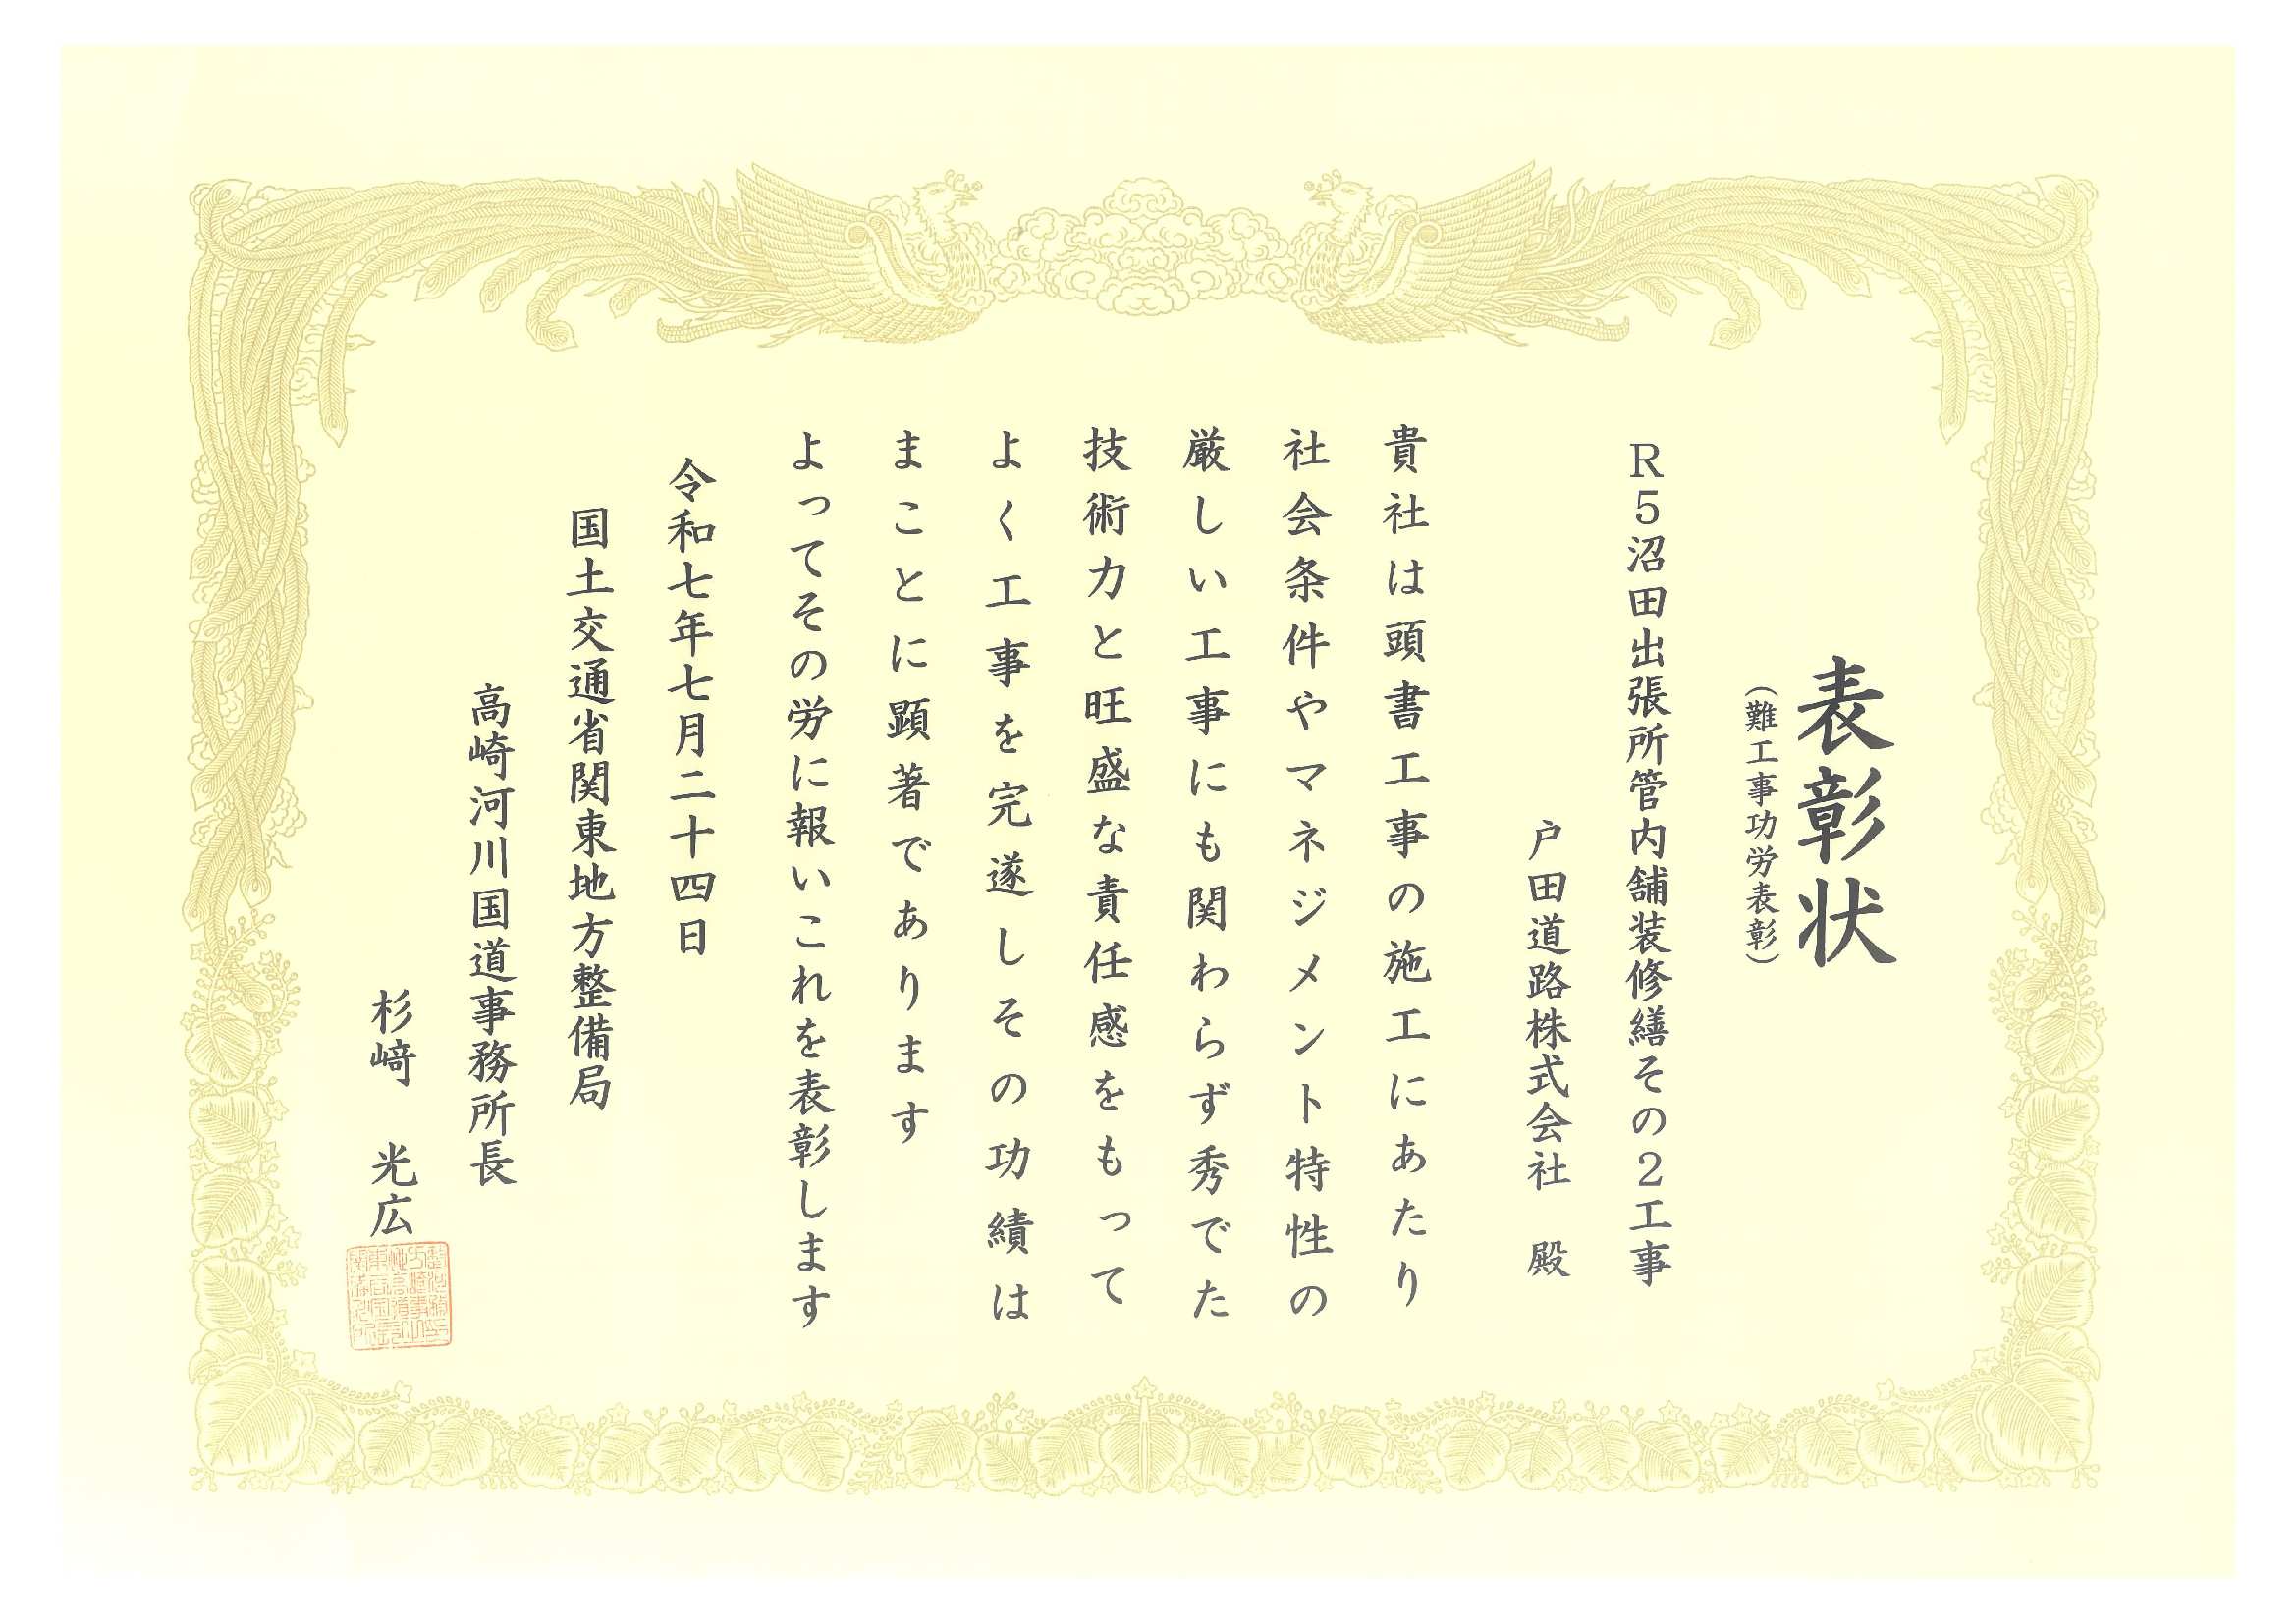 表彰状
（難工事功労表彰）
R5沼田出張所管内舗装修繕その2工事
戸田道路株式会社 殿
貴社は頭書工事の施工にあたり
社会条件やマネジメント特性の
厳しい工事にも関わらず秀でた
技術力と旺盛な責任感をもって
よく工事を完遂しその功績は
まことに顕著であります
よってその労に報いこれを表彰します
令和七年七月二十四日
国土交通省関東地方整備局
高崎河川国道事務所長
杉﨑 光広